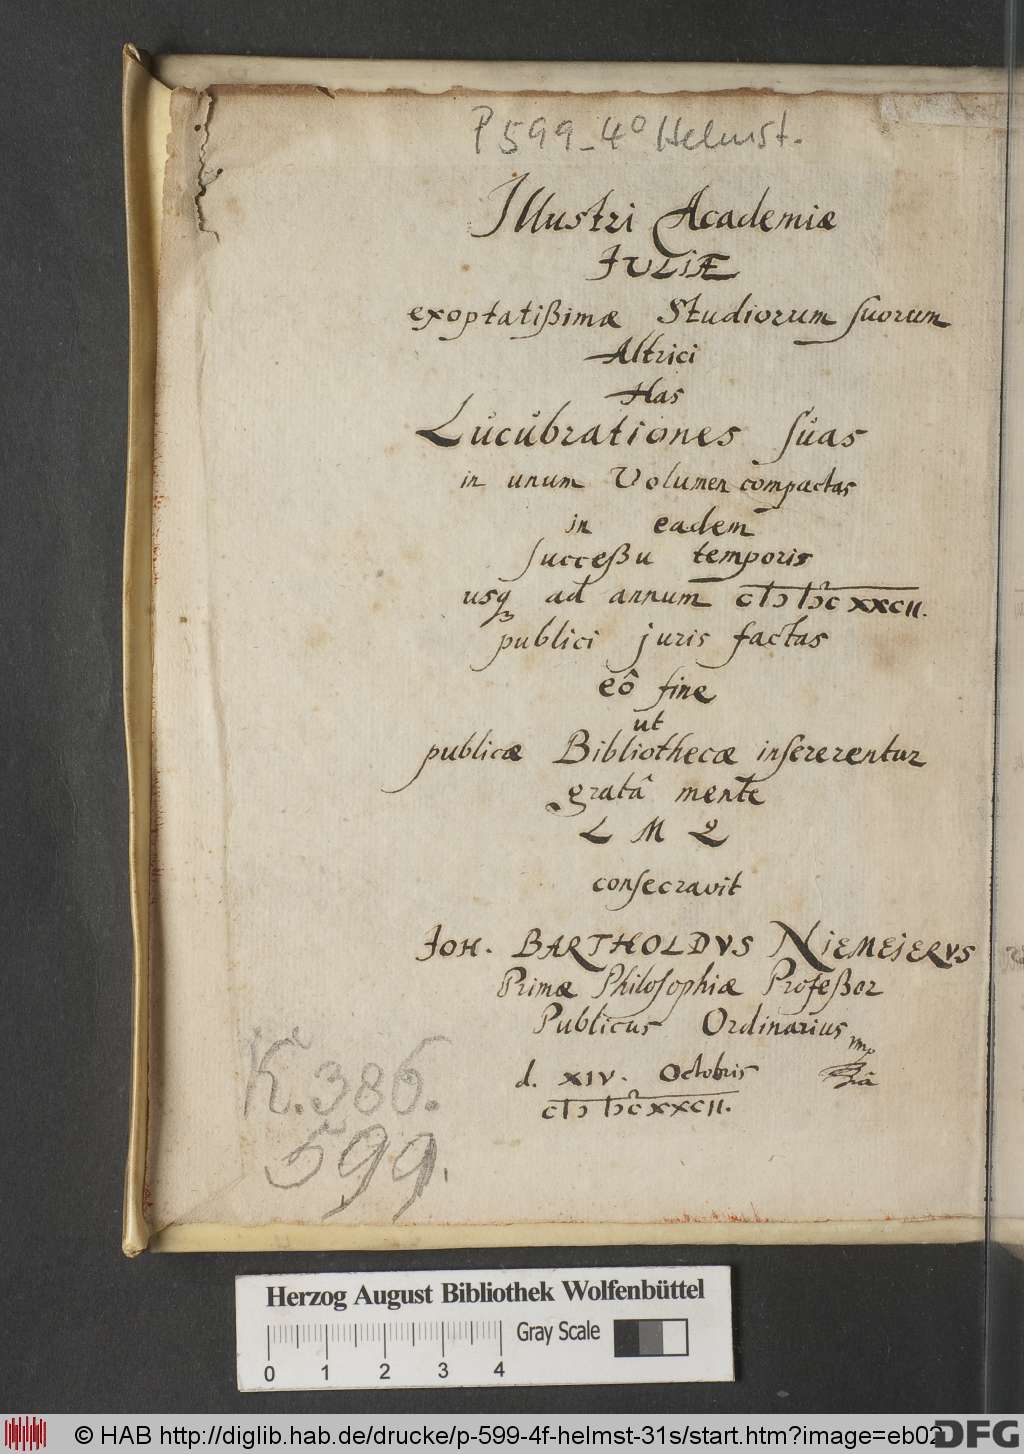 P 599_4° Helmst.
Illustri Academiæ
JULIÆ
exoptatißimæ Studiorum suorum
Altrici
Has
Lucubrationes suas
in unum Volumen compactas
in eadem
succeßu temporis
usq3 ad annum cIↄ Iↄc xxcII.
publici juris factas
eô fine
ut
publicæ Bibliothecæ insererentur
gratâ mente
L M Q
consecravit
JOH. BARTHOLDVS NIEMEJERVS
Primæ Philosophiæ Profeßor
Publicus Ordinarius
d. XIV. Octobris
cIↄ Iↄc xxcII.
K. 386.
599.
Herzog August Bibliothek Wolfenbüttel
Gray Scale
0 1 2 3 4
© HAB http://diglib.hab.de/drucke/p-599-4f-helmst-31s/start.htm?image=eb02
DFG